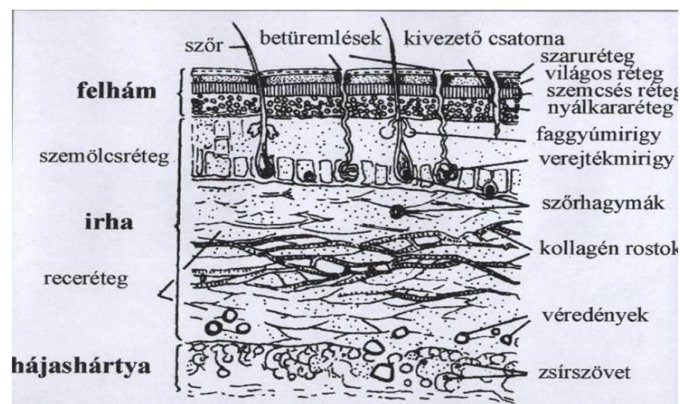 szőr
betüremlések
kivezető csatorna
felhám
szaruréteg
világos réteg
szemcsés réteg
nyálkararéteg
faggyúmirigy
szemölcsréteg
verejtékmirigy
szőrhagymák
irha
kollagén rostok
receréteg
véredények
hájashártya
zsírszövet